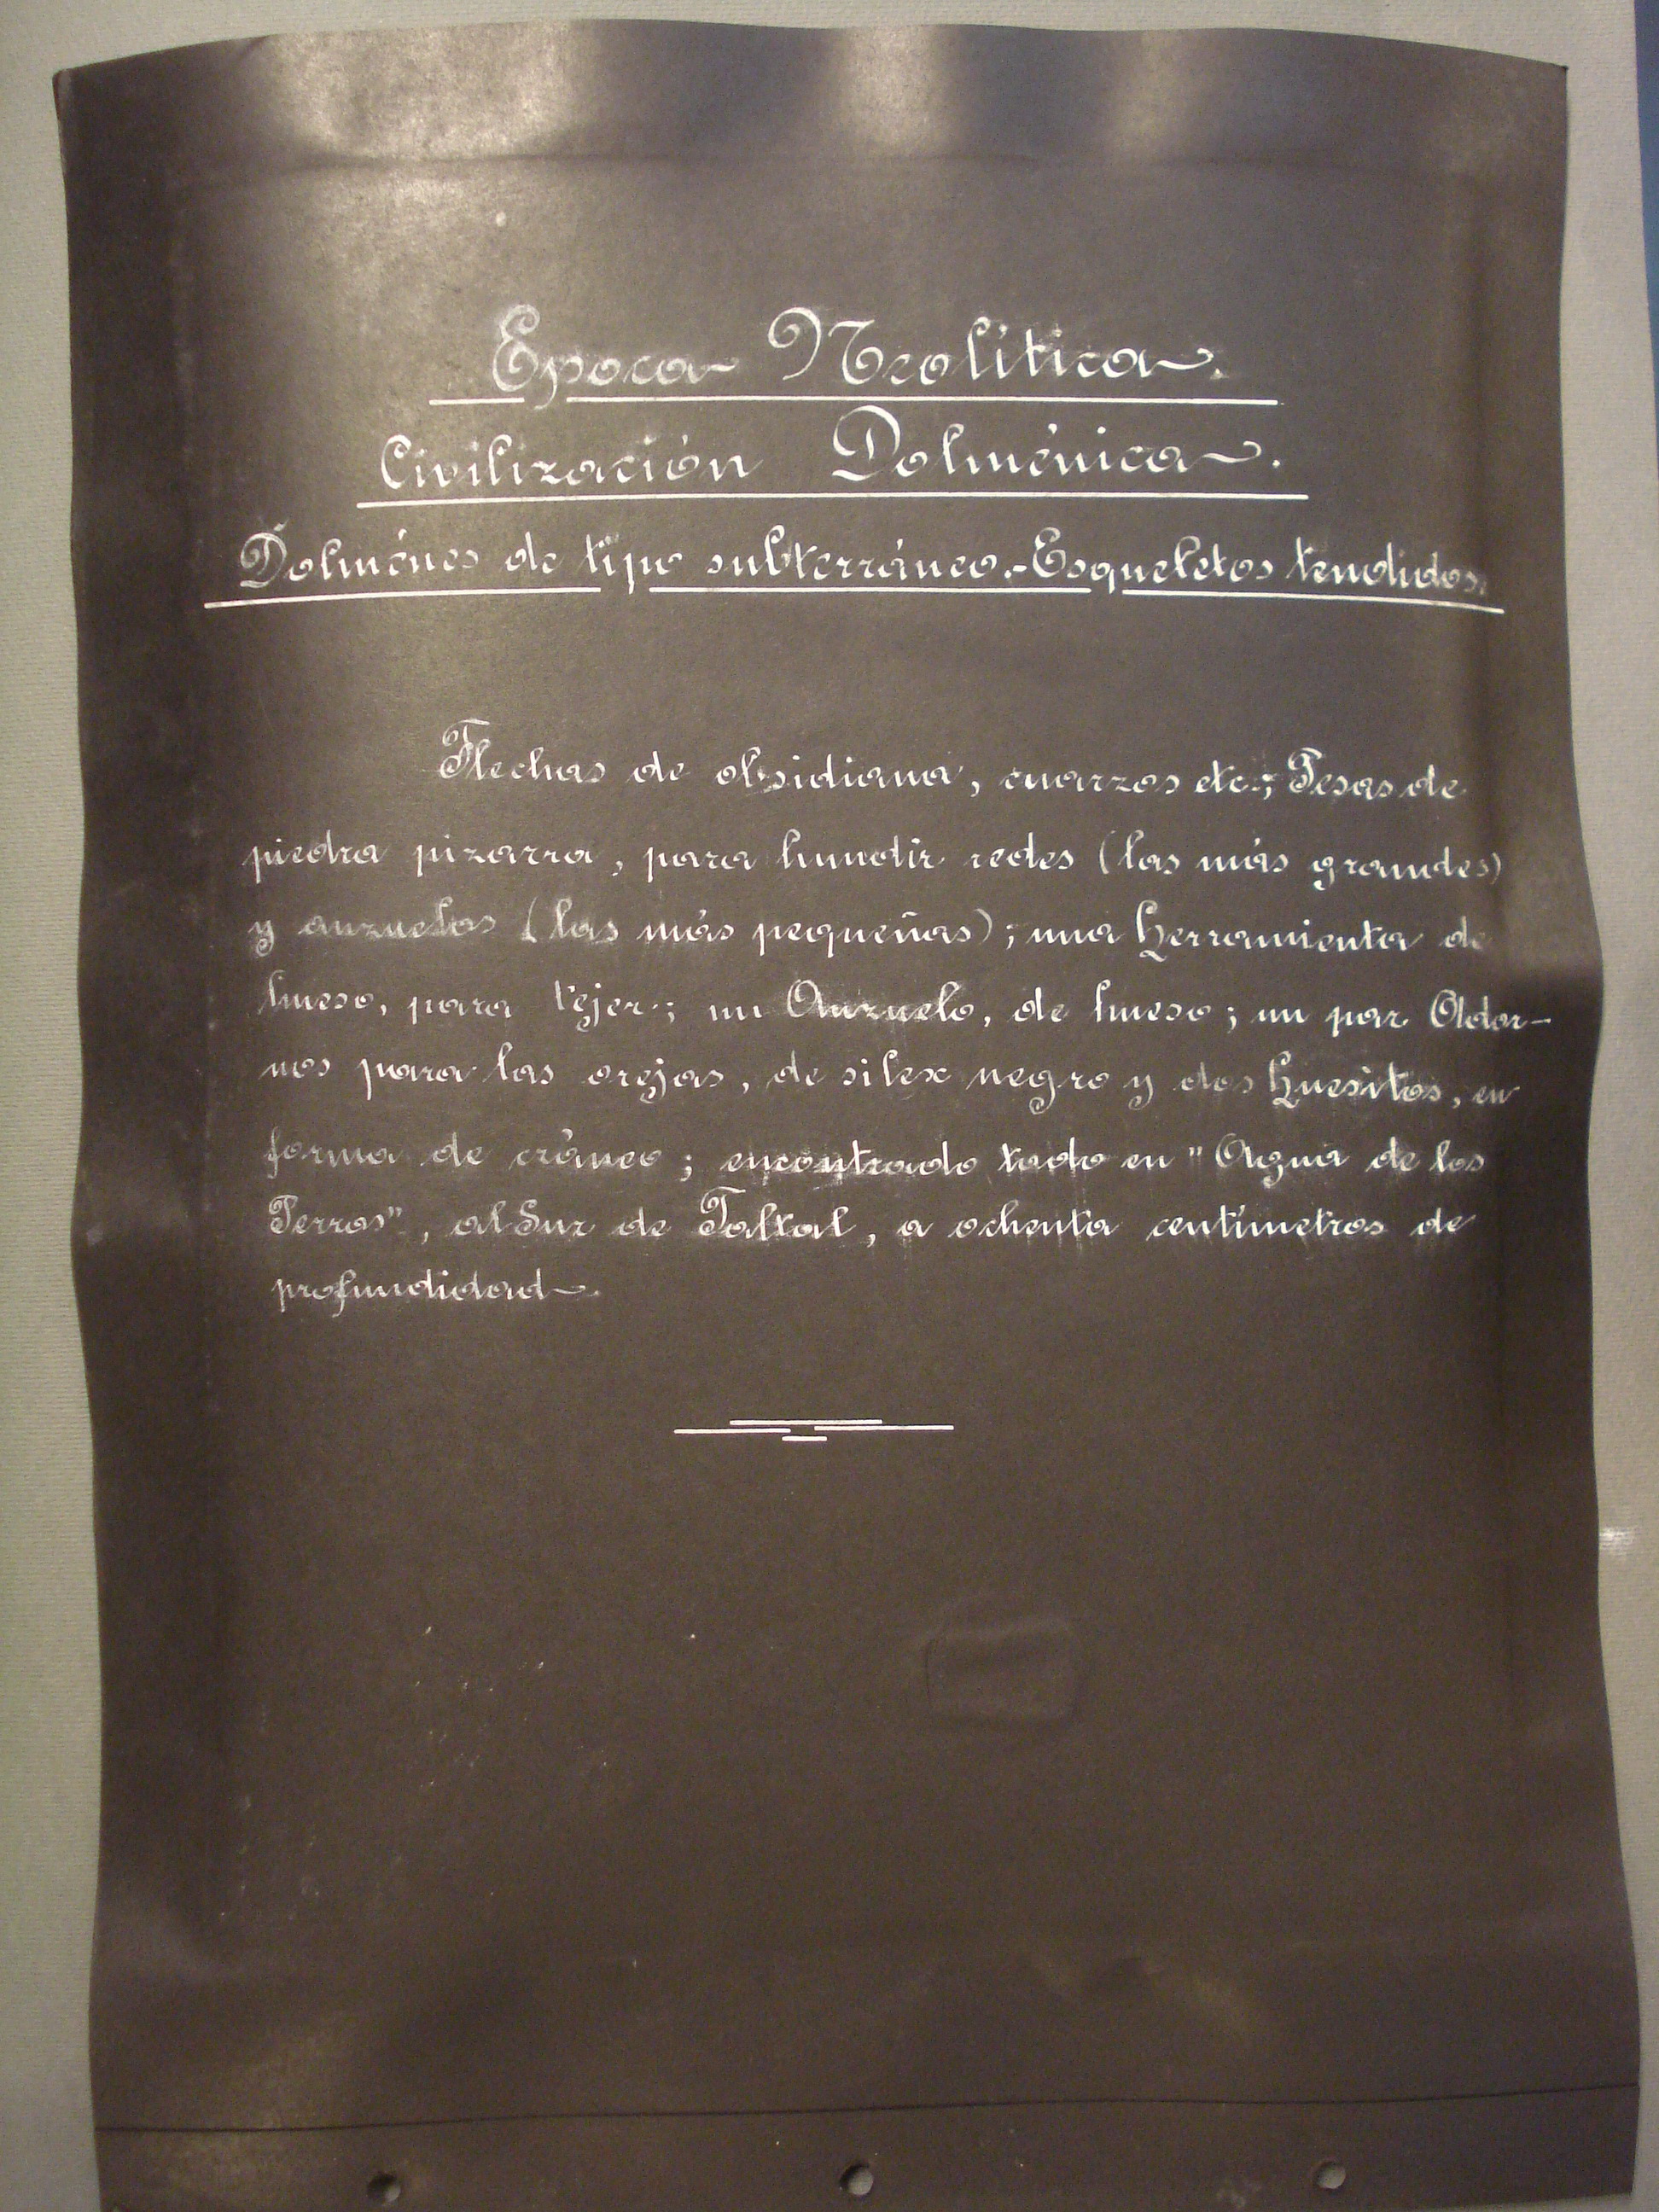 Epoca Neolítica.
Civilización Dolménica.
Dolménes de tipo subterráneo.-Esqueletos tendidos.
Flechas de obsidiana, cuarzos etc; Pesas de
piedra pizarra, para hundir redes (las más grandes)
y anzuelos (las más pequeñas); una herramienta de
hueso, para tejer.; un Anzuelo, de hueso; un par Ador-
nos para las orejas, de silex negro y dos huesitos, en
forma de cráneo; encontrado todo en "Agua de los
Perros", al Sur de Taltal, a ochenta centímetros de
profundidad.